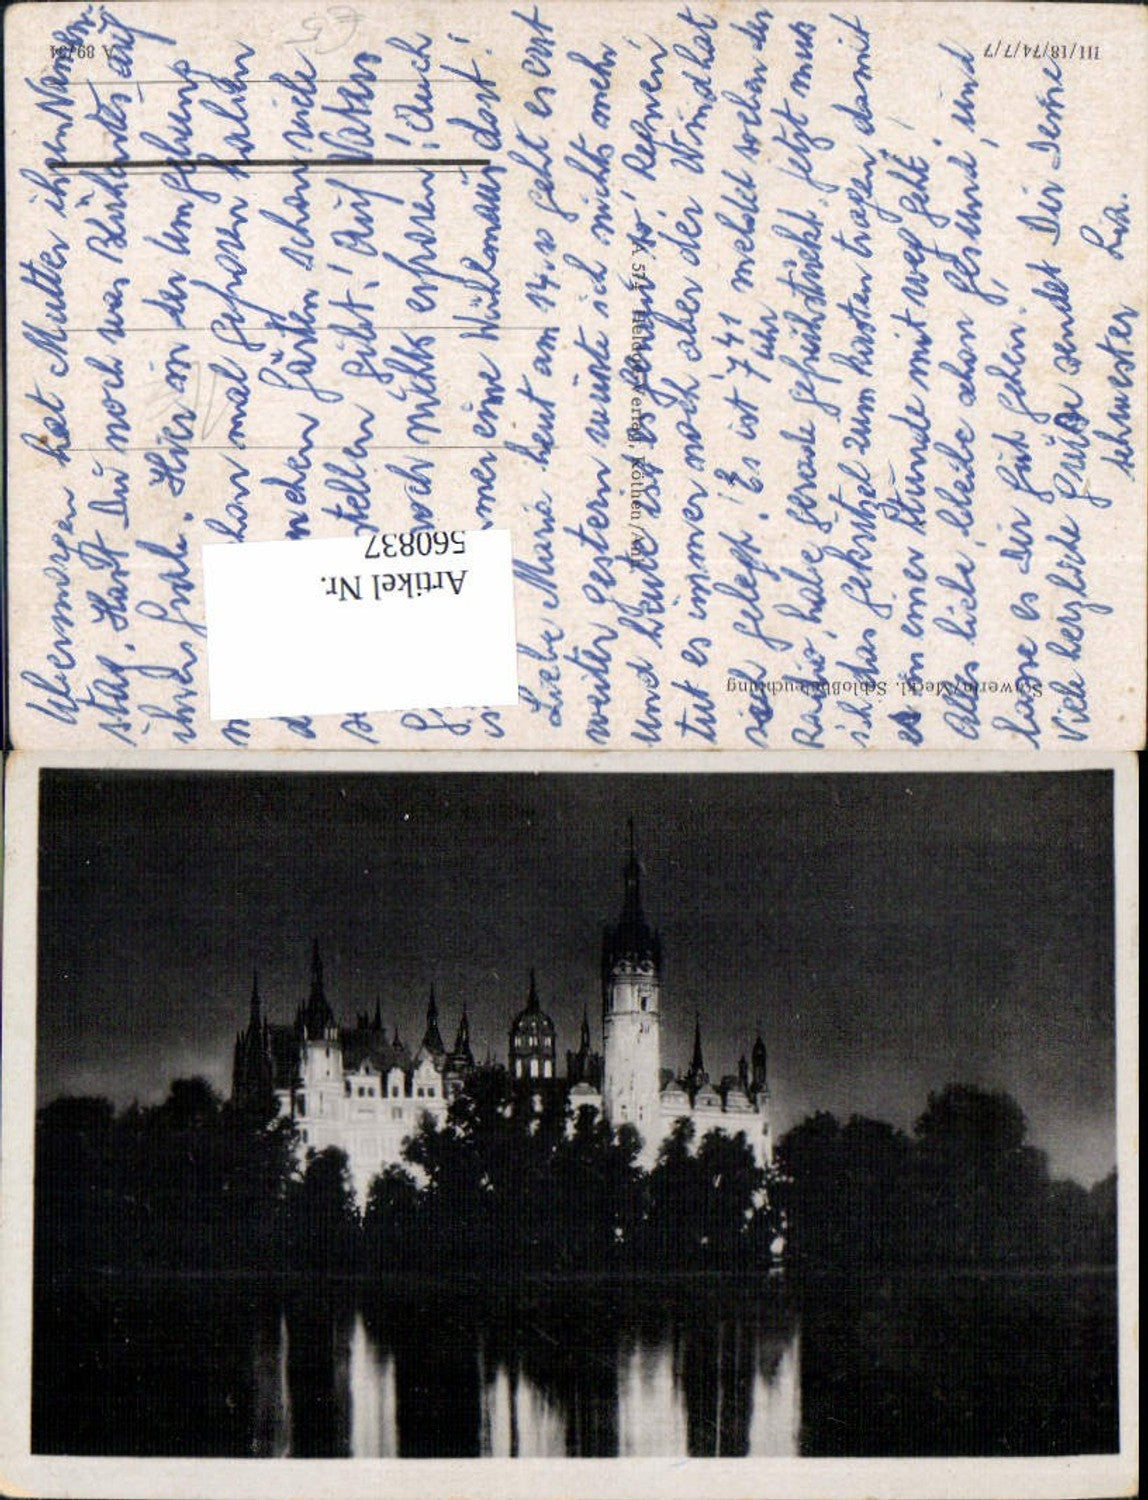 Übermorgen hat Mutter ihren Namens-
tag. Hast Du noch was Blühendes auf
ihrem Grabe. Hier in der Umgebung
schon mal gefroren haben
Gärten schon viele
stellen gibt! Auf Vaters
noch nichts erfroren! Auch
immer eine Wühlmaus dort!
Liebe Marie heut am 14.10 geht es erst
weiter gestern wüste ich nichts mehr
und heute ist es genug so! Regnen
tut es immer noch aber der Wind hat
sich gelegt! Es ist 7 Uhr 41 meldet soeben der
Radio, habe gerade gefrühstückt. Jetzt mus
ich das Gekritzel zum Kasten tragen damit
es in einer Stunde mit weg geht!
Alles liebe, bleibe schon gesund, und
lasse es Dir gut gehen.
Viele herzliche Grüße sendet Dir Deine
Schwester Lia.
Artikel Nr.
560837
Schwerin/Meckl. Schloßbeleuchtung
III/18/74/7/7
A 89/51
A 574 Heldge-Verlag, Köthen/Anh.